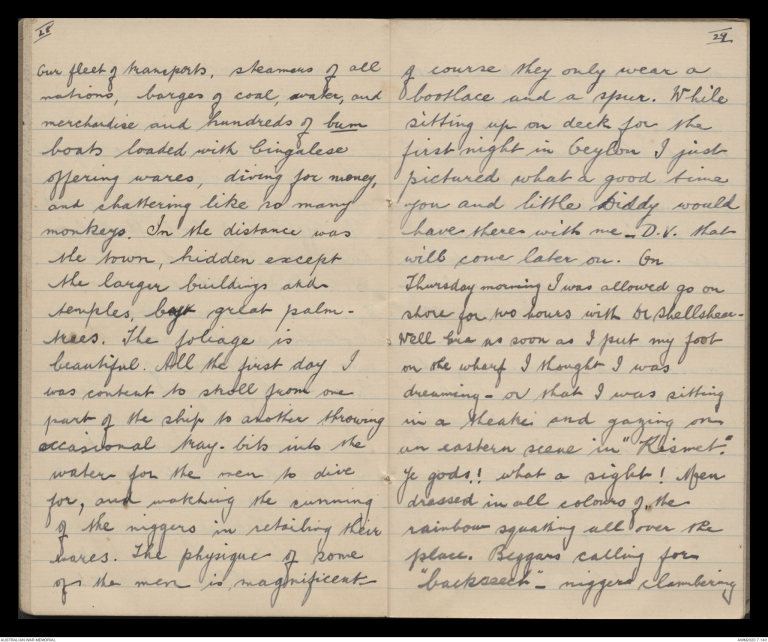 28
our fleet of transports, steamers of all
nations, barges of coal, water, and
merchandise and hundreds of bum
boats loaded with Cingalese
offering wares, diving for money,
and chattering like so many
monkeys. In the distance was
the town, hidden except
the larger buildings and
temples, by great palm-
trees. The foliage is
beautiful. All the first day I
was content to stroll from one
part of the ship to another throwing
occasional tray-bits into the
water for the men to dive
for, and watching the cunning
of the niggers in retailing their
wares. The physique of some
of the men is magnificent
29
of course they only wear a
bootlace and a spur. While
sitting up on deck for the
first night in Ceylon I just
pictured what a good time
you and little Diddy would
have there with me - D.V. that
will come later on. On
Thursday morning I was allowed go on
shore for two hours with Dr Shellshear-
Well Era as soon as I put my foot
on the wharf I thought I was
dreaming - or that I was sitting
in a theatre and gazing on
an eastern scene in "Kismet".
Ye gods!! what a sight! Men
dressed in all colours of the
rainbow squatting all over the
place. Beggars calling for
"backseech" - niggers clambering
AUSTRALIAN WAR MEMORIAL